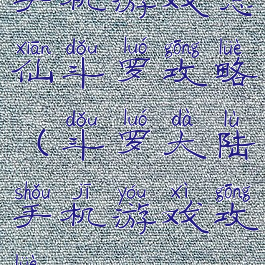 手机游戏恋
xiān dǒu luó gōng lüè
仙斗罗攻略
dǒu luó dà lù
（斗罗大陆
shǒu jī yóu xì gōng
手机游戏攻
lüè